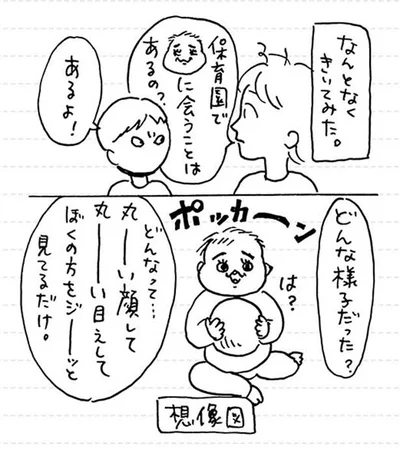 なんとなく
きいてみた。
保育園で
に会うことは
あるの?
あるよ!
どんな様子だった?
ポッカーン
は?
どんなって…
丸ーい顔して
丸ーい目えして
ぼくの方をジーーッと
見てるだけ。
想像図